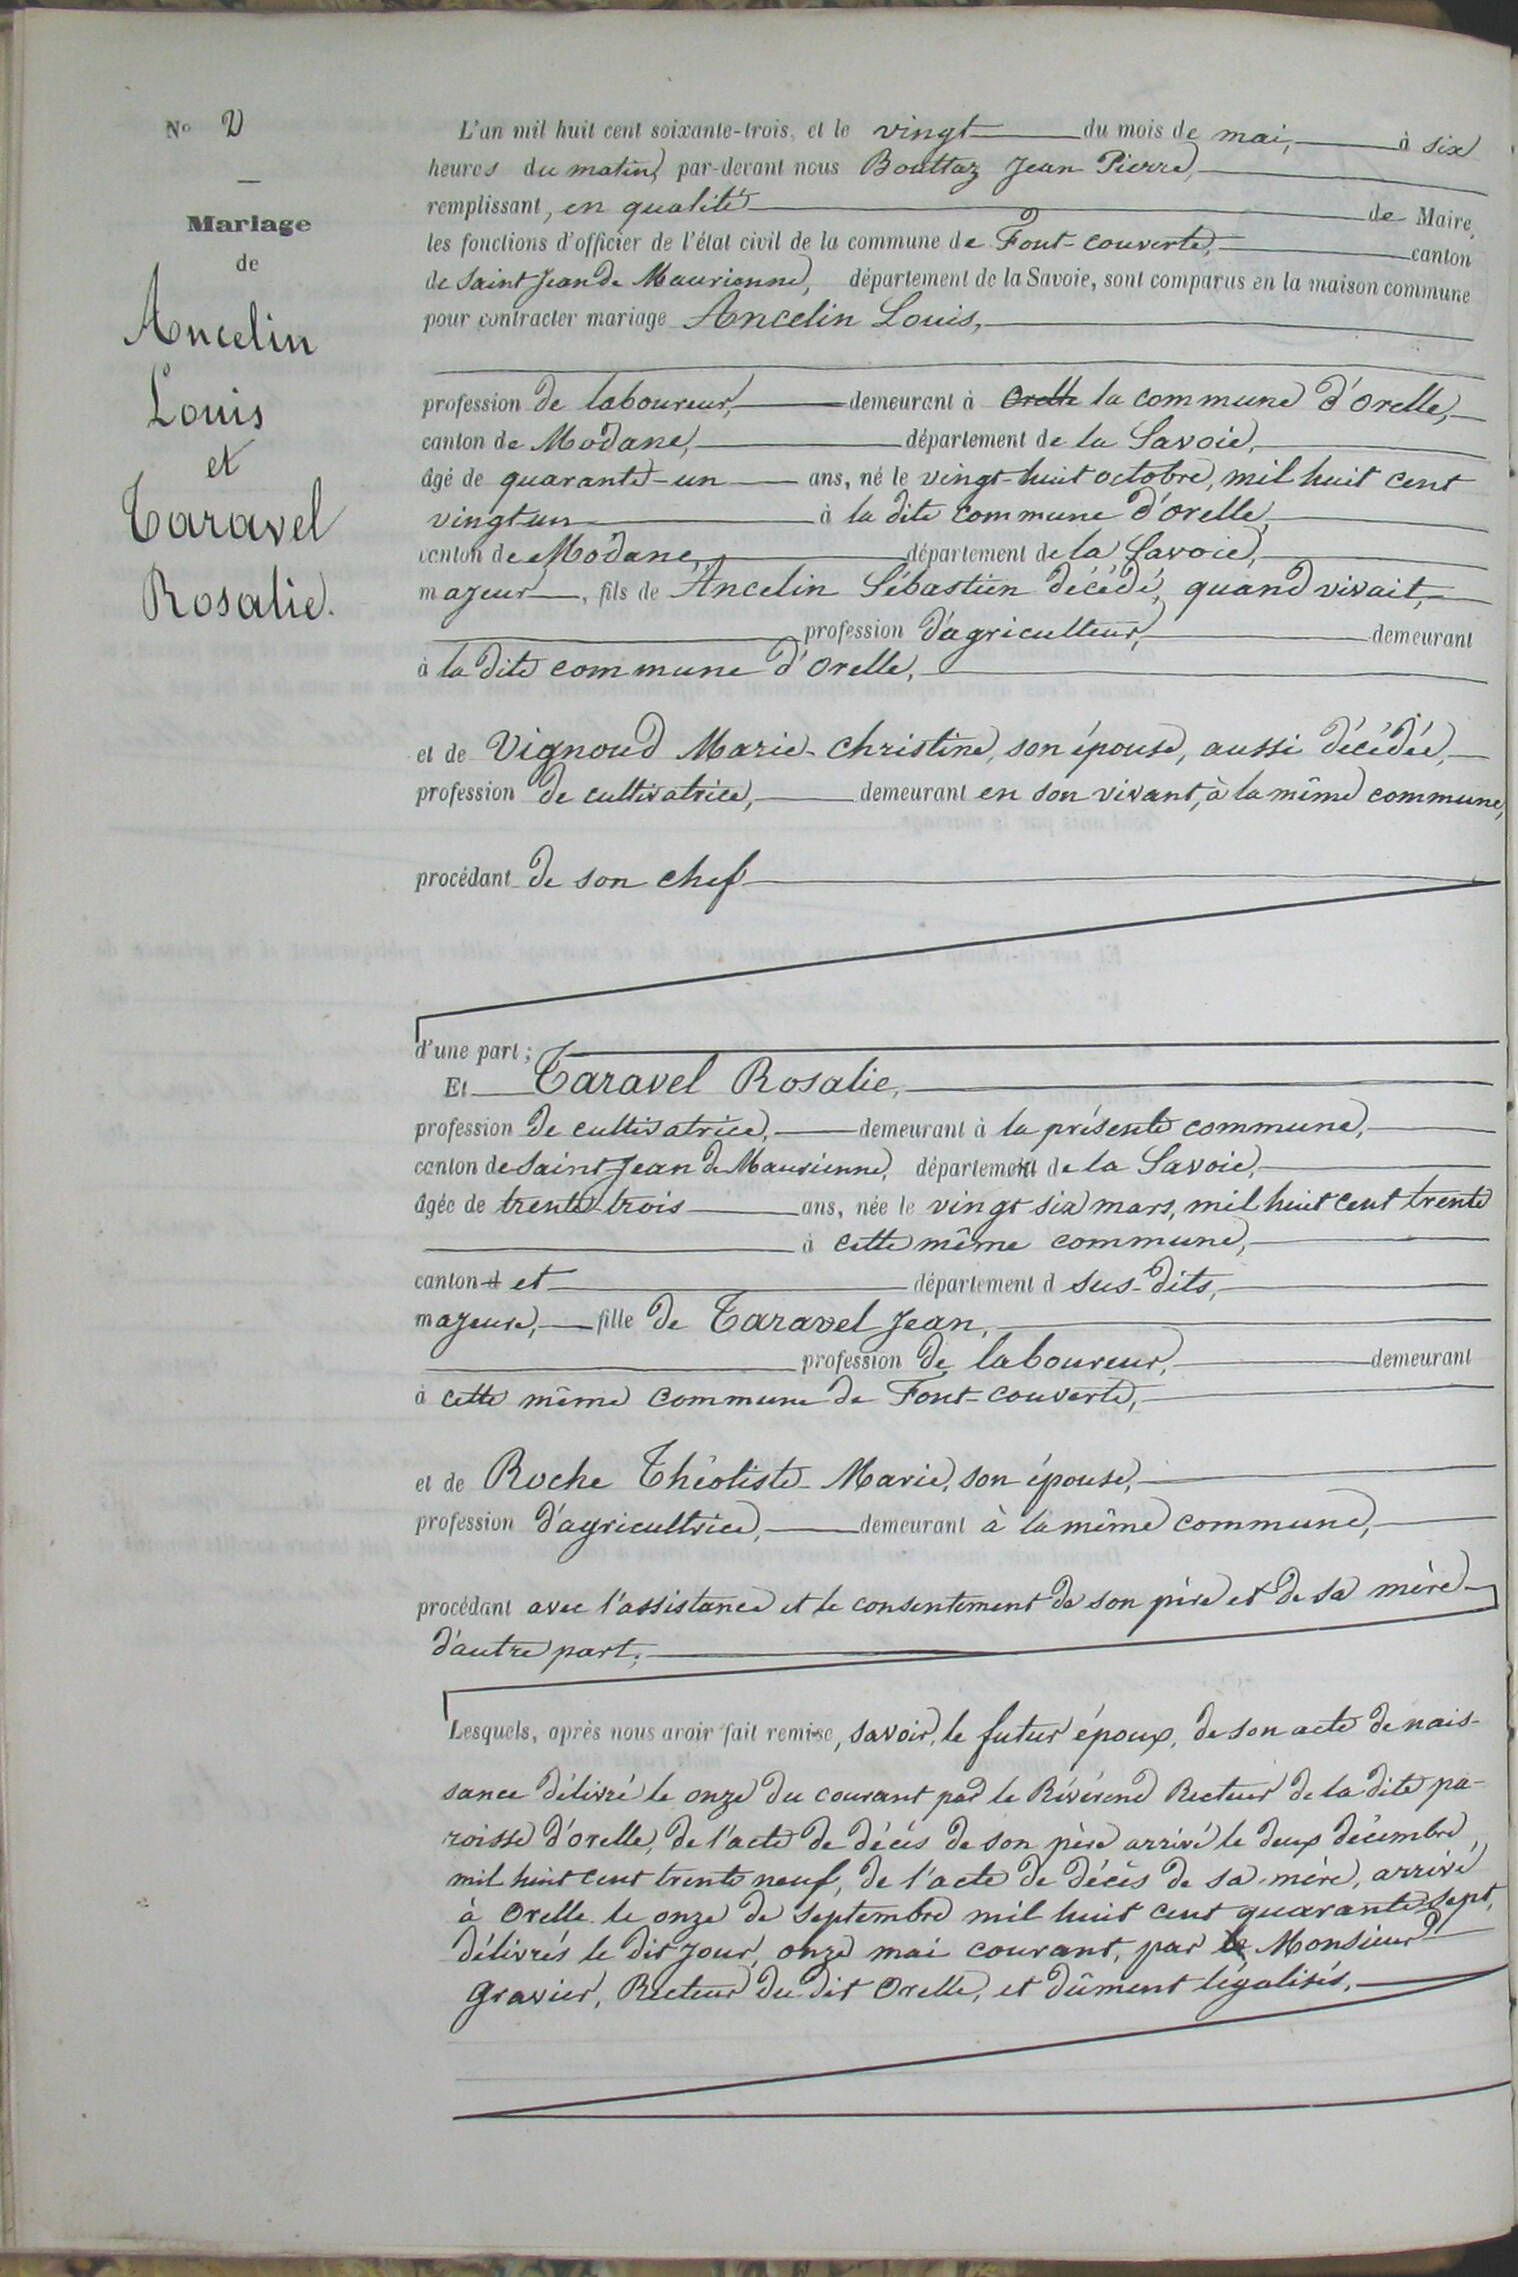 N° 2
Mariage
de
Ancelin
Louis
et
Taravel
Rosalie.
L'an mil huit cent soixante-trois, et le vingt du mois de mai, à six
heures du matin, par-devant nous Bouttaz Jean Pierre,
remplissant, en qualité de Maire,
les fonctions d'officier de l'état civil de la commune de Font-couverte, canton
de Saint Jean de Maurienne, département de la Savoie, sont comparus en la maison commune
pour contracter mariage Ancelin Louis,
profession de laboureur, demeurant à Orelle la commune d'Orelle,
canton de Modane, département de la Savoie,
âgé de quarante-un ans, né le vingt-huit octobre, mil huit cent
vingt-un à la dite commune d'Orelle,
canton de Modane, département de la Savoie,
majeur, fils de Ancelin Sébastien décédé, quand vivait,
profession d'agriculteur, demeurant
à la dite commune d'Orelle,
et de Vignoud Marie-Christine, son épouse, aussi décédée,
profession de cultivatrice, demeurant en son vivant, à la même commune,
procédant de son chef
d'une part ;
Et Taravel Rosalie,
profession de cultivatrice, demeurant à la présente commune,
canton de Saint Jean de Maurienne, département de la Savoie,
âgée de trente-trois ans, née le vingt six mars, mil huit cent trente
à cette même commune,
canton d et département d sus-dits,
majeure, fille de Taravel Jean,
profession de laboureur, demeurant
à cette même commune de Font-couverte,
et de Roche Théotiste-Marie, son épouse,
profession d'agricultrice, demeurant à la même commune,
procédant avec l'assistance et le consentement de son père et de sa mère
d'autre part ;
Lesquels, après nous avoir fait remise, savoir, le futur époux, de son acte de nais-
sance délivré le onze du courant par le Révérend Recteur de la dite pa-
roisse d'Orelle, de l'acte de décès de son père arrivé le deux décembre,
mil huit cent trente neuf, de l'acte de décès de sa mère, arrivé
à Orelle le onze de septembre mil huit cent quarante-sept,
délivrés le dit jour, onze mai courant, par le Monsieur
Gravier, Recteur du dit Orelle, et dûment légalisés,